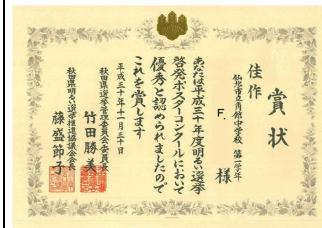 賞状
佳作
仙北市立角館中学校 第二学年
F. 様
あなたは平成三十年度明るい選挙
啓発ポスターコンクールにおいて
優秀と認められましたので
これを賞します
平成三十年十一月三十日
秋田県選挙管理委員会委員長
竹田勝美
秋田県明るい選挙推進協議会会長
藤盛節子